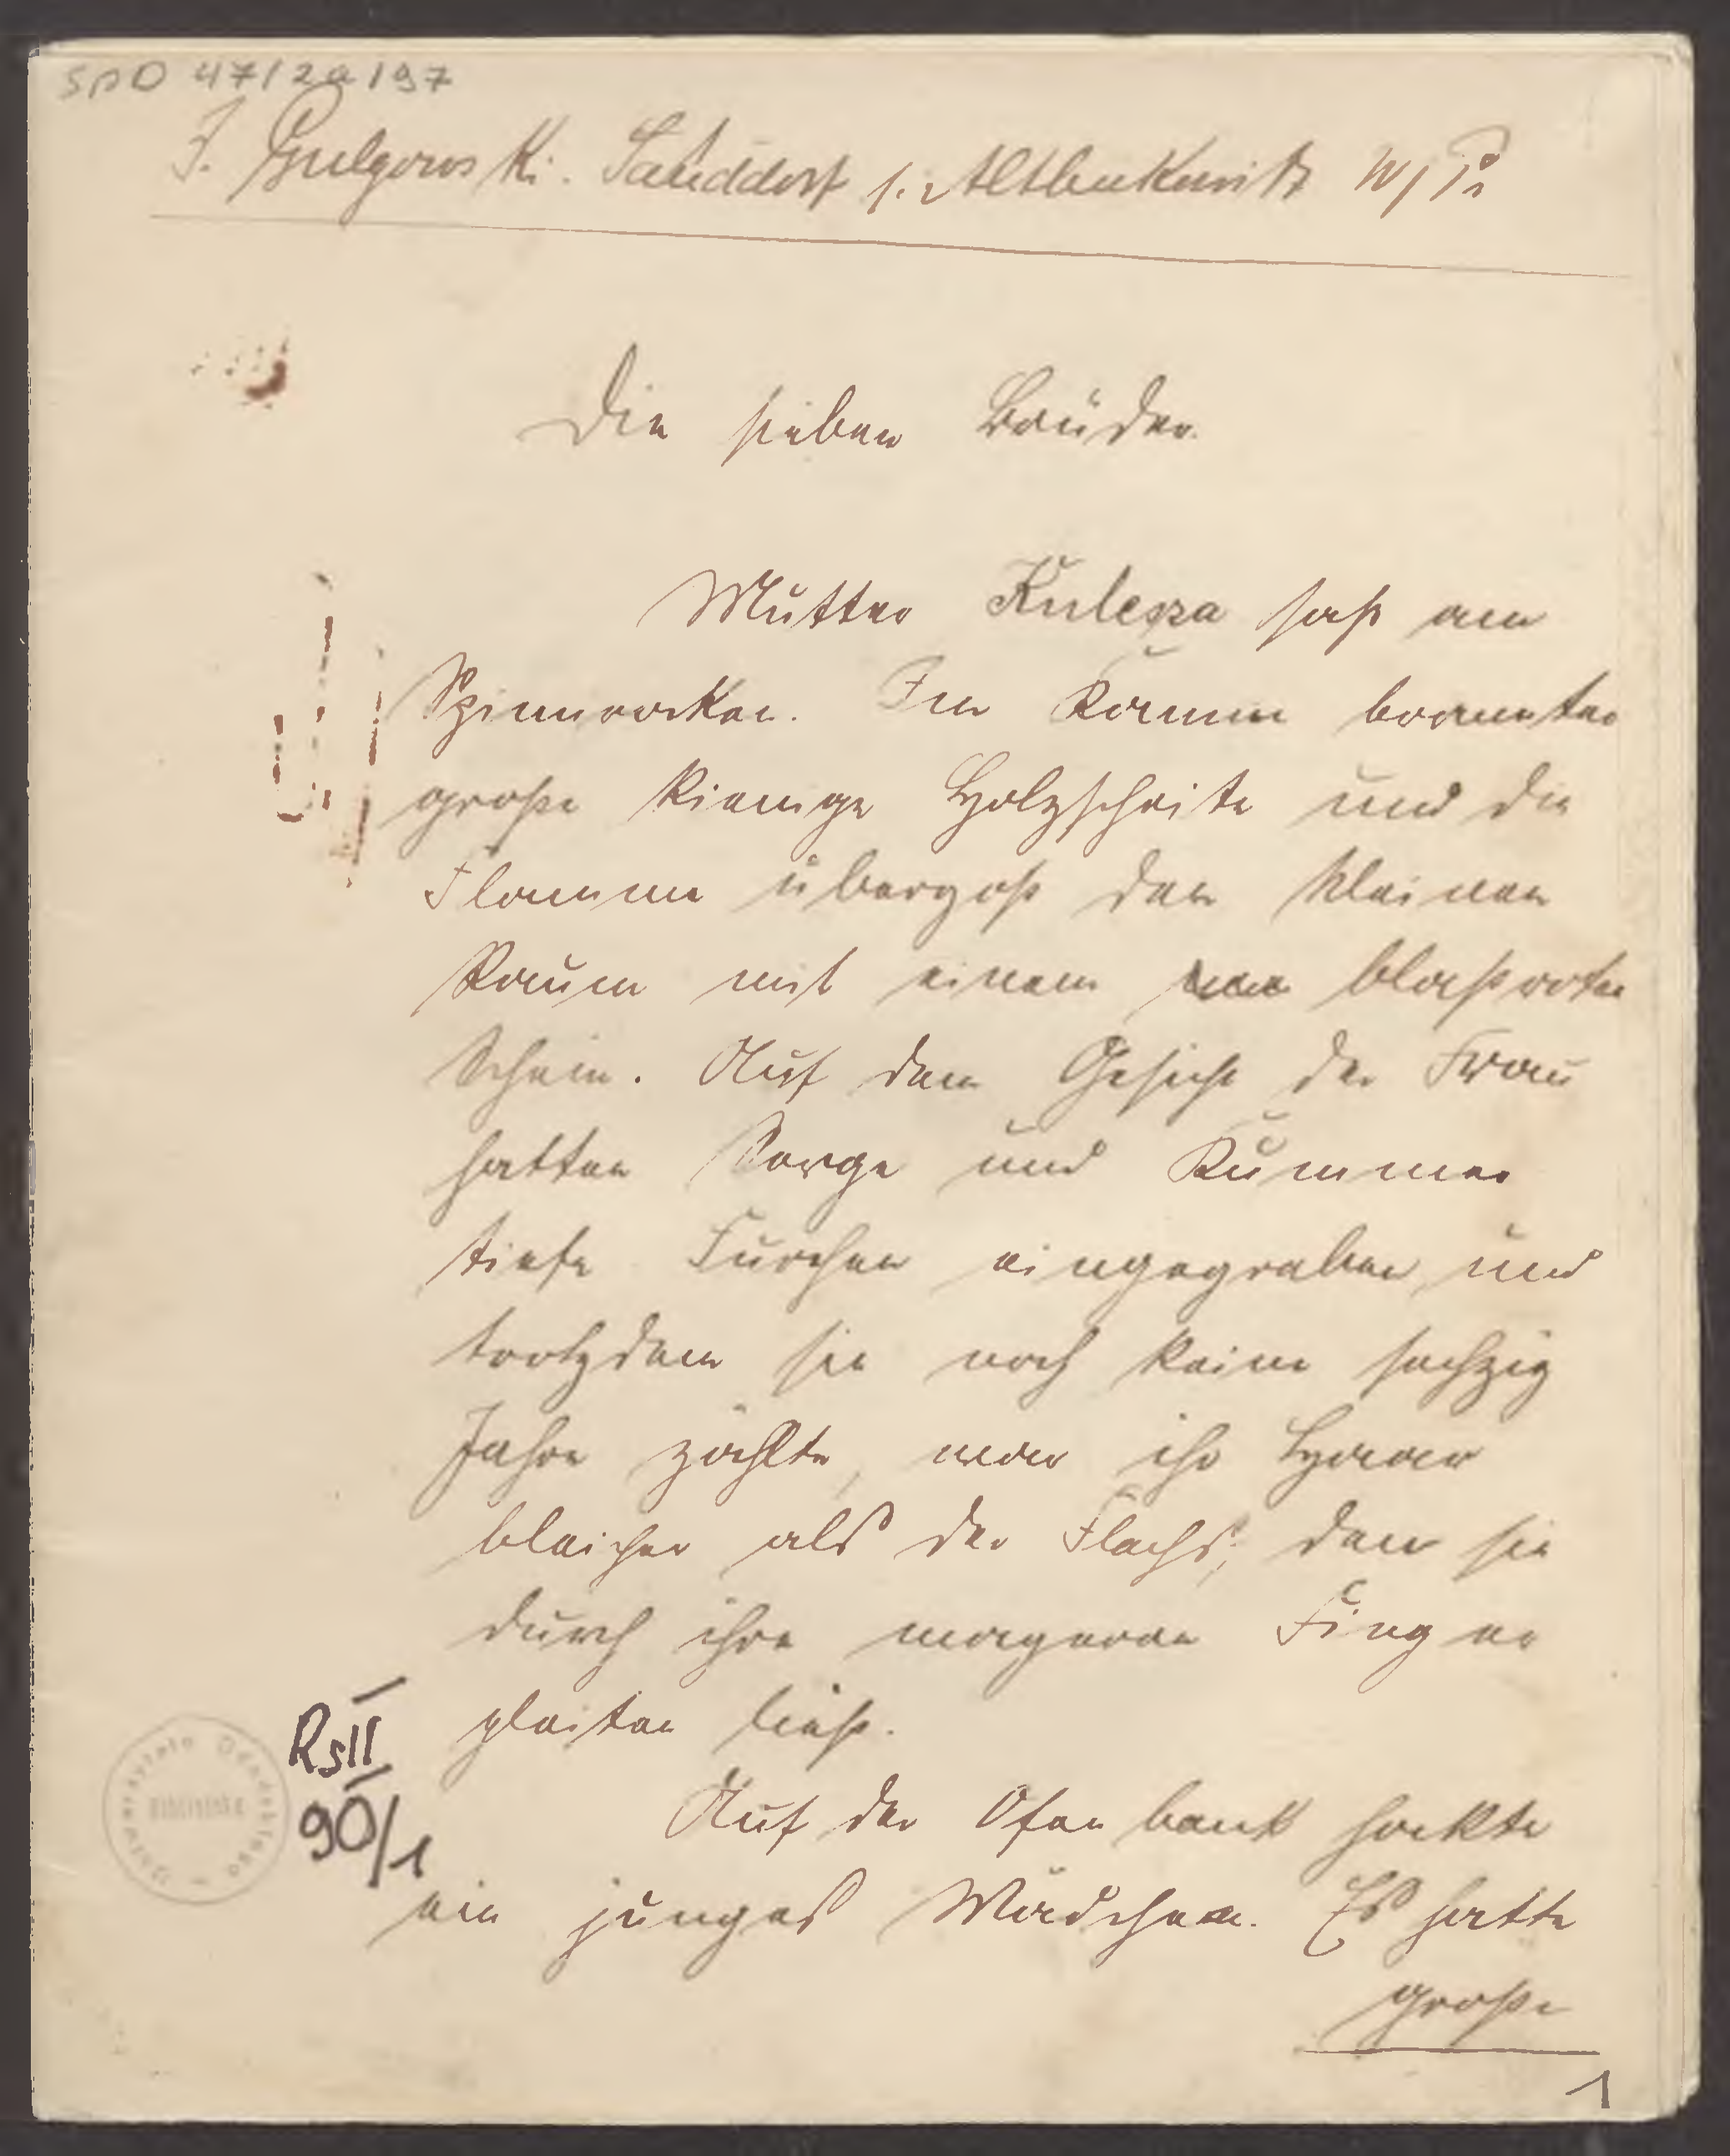 SDD 47/2a/97
J. Gulgowski. Sanddorf b. Altbukowitz W/Pr
Die sieben Brüder.
Mutter Kulessa saß am
Spinnrocken. Im Kamin brannten
große kienige Holzscheite und die
Flamme übergoß den kleinen
Raum mit einem blaßroten
Schein. Auf dem Gesicht der Frau
hatten Sorge und Kummer
tiefe Furchen eingegraben und
trotzdem sie noch keine sechzig
Jahre zählte, war ihr Haar
bleicher als der Flachs, den sie
durch ihre mageren Finger
gleiten ließ.
Auf der Ofenbank hockte
ein junges Mädchen. Es hatte
große
RsII
90/1
Uniwersytetu Gdańskiego
Biblioteka
1